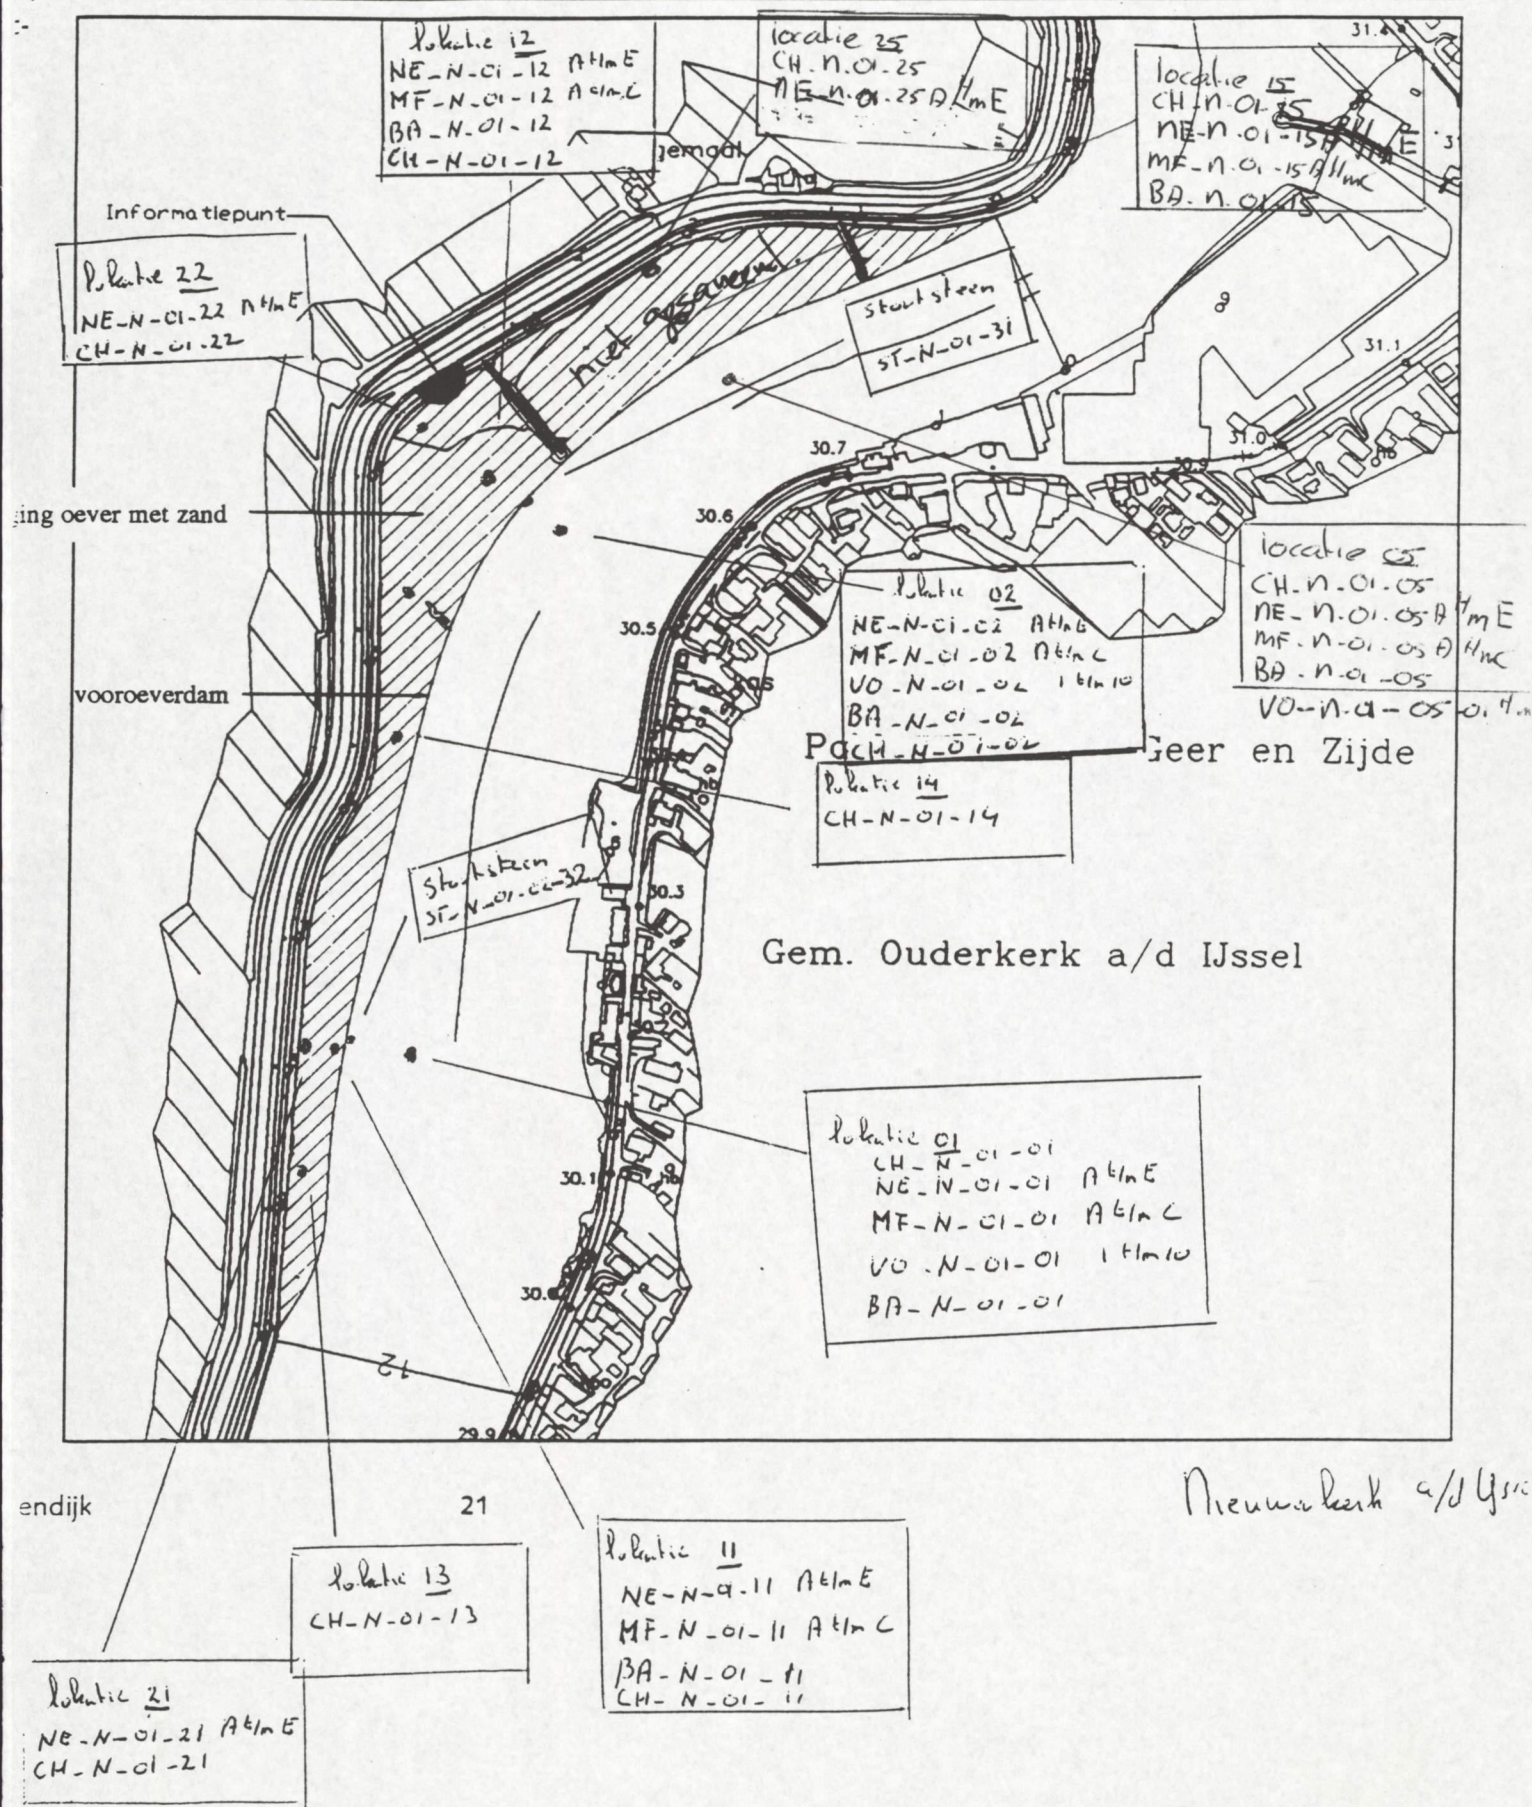 lokatie 12
NE-N-01-12 A t/m E
MF-N-01-12 A t/m C
BA-N-01-12
CH-N-01-12
locatie 25
CH-N-01-25
NE-N-01-25 A t/m E
locatie 15
CH-N-01-15
NE-N-01-15 A t/m E
MF-N-01-15 A t/m C
BA-N-01-15
31.4
gemaal
Informatiepunt
lokatie 22
NE-N-01-22 A t/m E
CH-N-01-22
niet gesaneerd
stortsteen
ST-N-01-31
31.1
31.0
30.9
30.7
30.6
30.5
ing oever met zand
locatie 05
CH-N-01-05
NE-N-01-05 A t/m E
MF-N-01-05 A t/m C
BA-N-01-05
lokatie 02
NE-N-01-02 A t/m E
MF-N-01-02 A t/m C
VO-N-01-02 1 t/m 10
BA-N-01-02
CH-N-01-02
vooroeverdam
Geer en Zijde
lokatie 14
CH-N-01-14
stortsteen
30.3
Gem. Ouderkerk a/d IJssel
lokatie 01
CH-N-01-01
NE-N-01-01 A t/m E
MF-N-01-01 A t/m C
VO-N-01-01 1 t/m 10
BA-N-01-01
30.1
12
29.9
endijk
21
Nieuwerkerk a/d IJssel
lokatie 13
CH-N-01-13
lokatie 11
NE-N-01-11 A t/m E
MF-N-01-11 A t/m C
BA-N-01-11
CH-N-01-11
lokatie 21
NE-N-01-21 A t/m E
CH-N-01-21